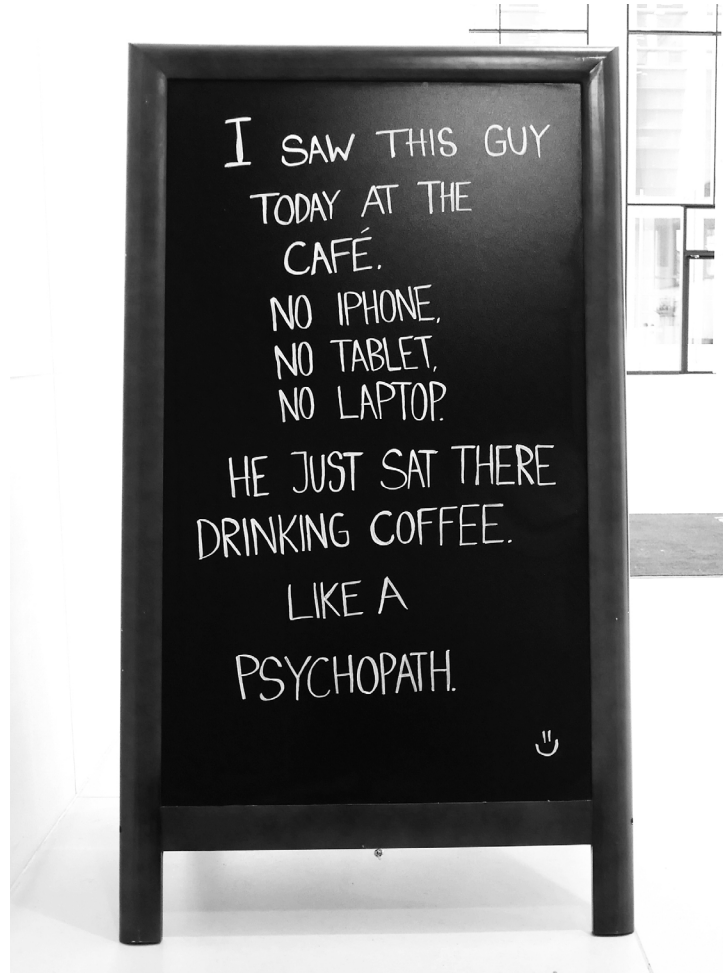 I SAW THIS GUY
TODAY AT THE
CAFÉ.
NO IPHONE,
NO TABLET,
NO LAPTOP.
HE JUST SAT THERE
DRINKING COFFEE.
LIKE A
PSYCHOPATH.